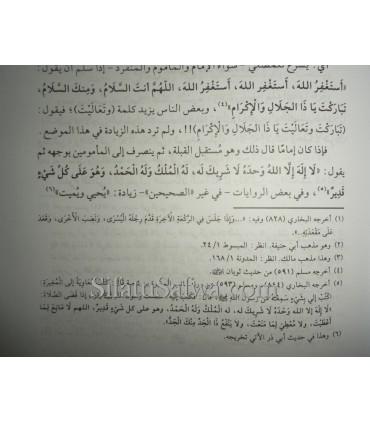 أي: يشرع للمصلي – سواء الإمام والمأموم والمنفرد – إذا سلم أن يقول:
«أَستَغْفِرُ اللهَ، أَستَغْفِر اللهَ، أَستَغْفِرُ اللهَ، اللَّهُمَّ أَنتَ السَّلَامُ، وَمِنكَ السَّلَامُ،
تَبَارَكْتَ يَا ذَا الجَلَالِ وَالْإِكْرَامِ»(٤)، وبعض الناس يزيد كلمة (وتعاليت)؛ فيقول:
(تَبَارَكْتَ وتَعَالَيْتَ يَا ذَا الجَلَالِ وَالْإِكْرَامِ)!!، ولم ترد هذه الزيادة في هذا الموضع.
فإذا كان إمامًا قال ذلك وهو مُستقبل القبلة، ثم ينصرف إلى المأمومين بوجهه ثم
يقول: «لَا إِلَهَ إِلَّا اللهُ وَحْدَهُ لَا شَرِيكَ لَهُ، لَهُ الْمُلْكُ وَلَهُ الْحَمْدُ، وَهُوَ عَلَى كُلِّ شَيْءٍ
قَدِيرٌ»(٥)، وفي بعض الروايات – في غير «الصحيحين» – زيادة: «يُحيي ويُميت»(٦)
(١) أخرجه البخاري (٨٢٨) وفيه: «...وإذا جَلَسَ في الرَّكعَةِ الآخِرَةِ قَدَّمَ رِجلَهُ اليُسْرَى، وَنَصَبَ الأُخرَى، وَقَعَدَ
عَلَى مَقعَدَتِهِ...».
(٢) وهو مذهب أبي حنيفة. انظر: المبسوط ٢٤/١.
(٣) وهذا مذهب مالك. انظر: المدونة ١٦٨/١.
(٤) أخرجه مسلم (٥٩١) من حديث ثوبان
(٥) أخرجه البخاري (٨٤٤)، ومسلم (٥٩٣)
اكْتُبْ إِلَيَّ بِشَيْءٍ سَمِعْتَهُ مِن رَسُولِ اللهِ ﷺ إِذَا قَضَى الصَّلاةَ:
«لَا إِلَهَ إِلَّا الله وَحْدَهُ لَا شَرِيكَ لَهُ، لَهُ الْمُلْكُ وَلَهُ الْحَمْدُ، وهو على كل شَيْءٍ قَدِيرٌ، اللهم لَا مَانِعَ لِمَا
أَعْطَيْتَ، ولا مُعْطِيَ لِمَا مَنَعْتَ، ولا يَنْفَعُ ذَا الْجَدِّ مِنْكَ الْجَدُّ».
(٦) وهذا في حديث أبي ذر الآتي تخريجه.